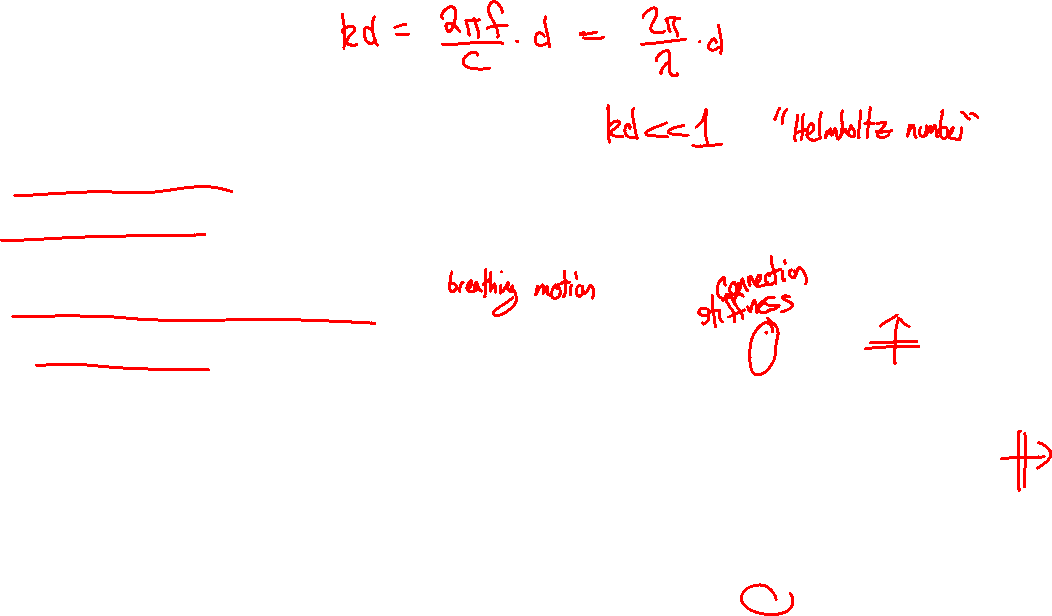 kd = 2πf/c · d = 2π/λ · d
kd<<1 "Helmholtz number"
breathing motion
connection
stiffness